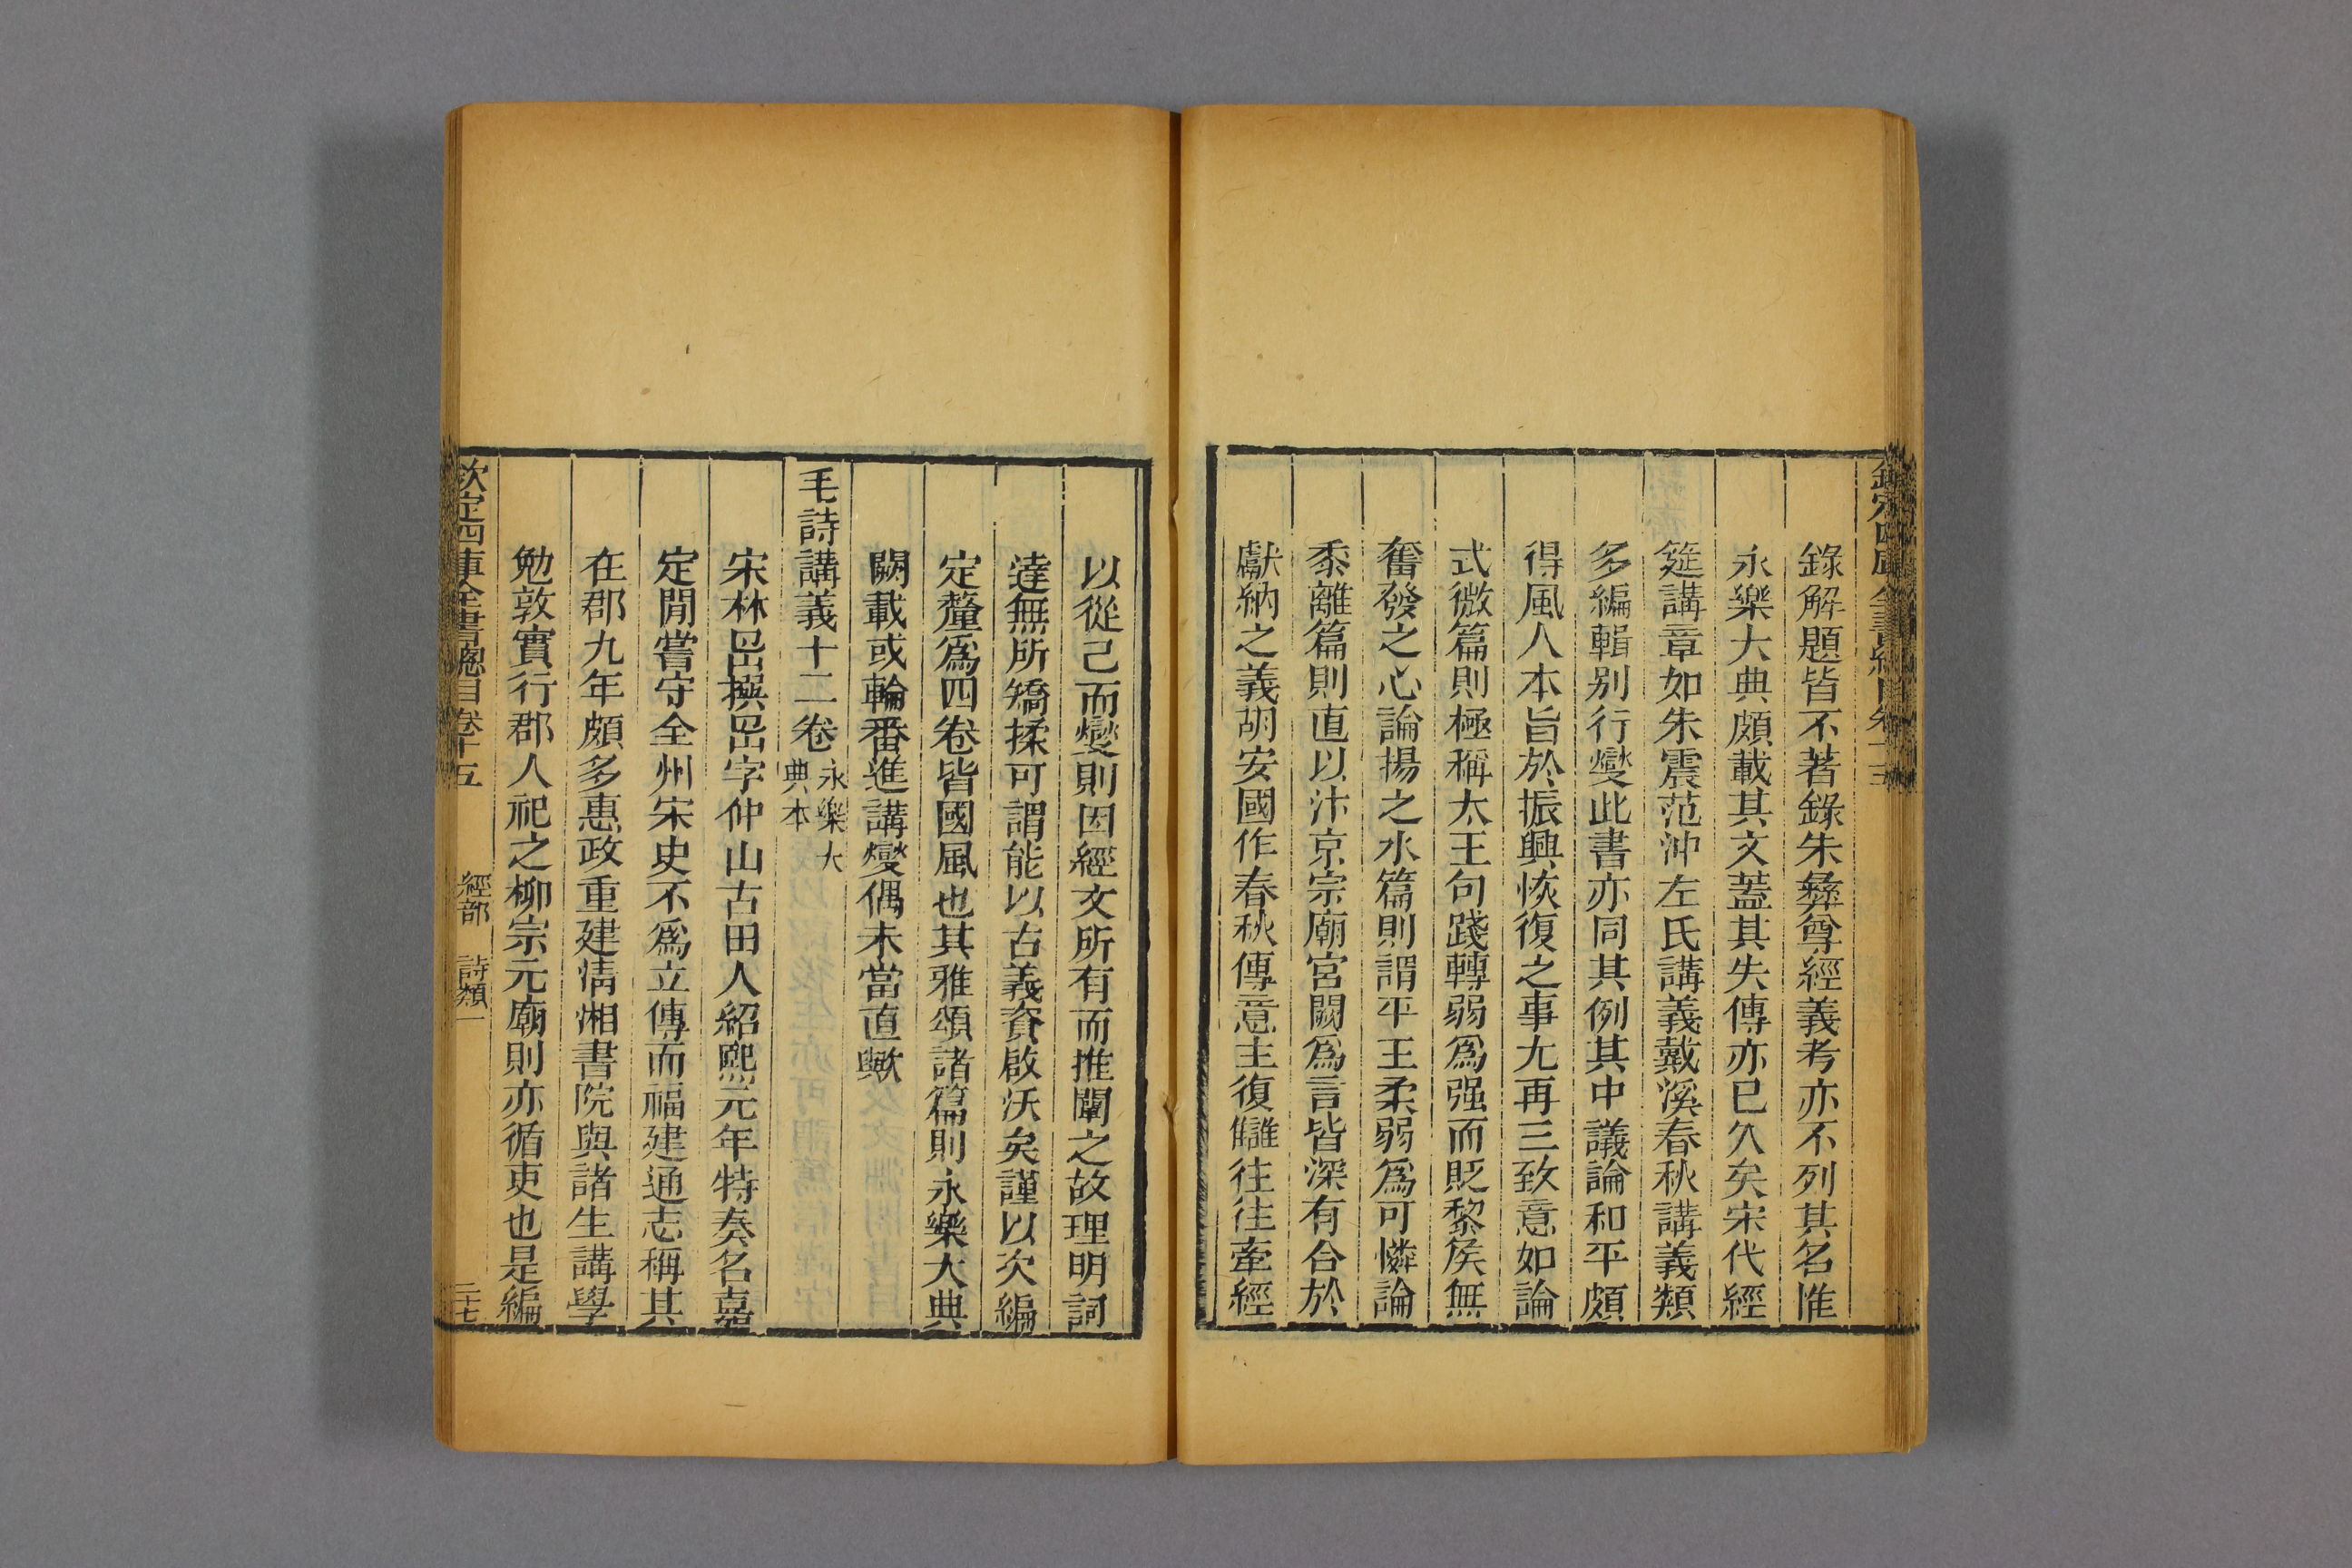 錄解題皆不著錄朱彝尊經義考亦不列其名惟
永樂大典頗載其文蓋其失傳亦已久矣宋代經
筵講章如朱震范沖左氏講義戴溪春秋講義類
多編輯別行燮此書亦同其例其中議論和平頗
得風人本旨於振興恢復之事尤再三致意如論
式微篇則極稱太王句踐轉弱爲强而貶黎侯無
奮發之心論揚之水篇則謂平王柔弱爲可憐論
黍離篇則直以汴京宗廟宮闕爲言皆深有合於
獻納之義胡安國作春秋傳意主復讎往往牽經
以從己而燮則因經文所有而推闡之故理明詞
達無所矯揉可謂能以古義資啟沃矣謹以次編
定釐爲四卷皆國風也其雅頌諸篇則永樂大典
闕載或輪番進講燮偶未當直歟
毛詩講義十二卷 永樂大典本
宋林岊撰岊字仲山古田人紹熙元年特奏名嘉
定閒嘗守全州宋史不爲立傳而福建通志稱其
在郡九年頗多惠政重建淸湘書院與諸生講學
勉敦實行郡人祀之柳宗元廟則亦循吏也是編
欽定四庫全書總目卷十五 經部 詩類一 二十七